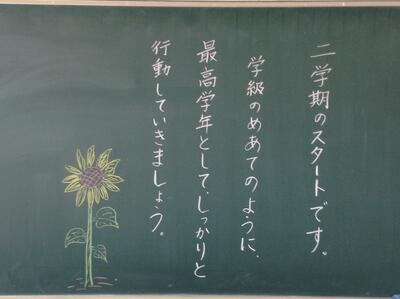 二学期のスタートです。
学級のめあてのように、
最高学年として、しっかりと
行動していきましょう。